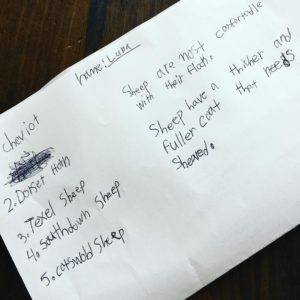 Name: Luna
cheviot
2. Dorset Horn
3. Texel Sheep
4. southdown Sheep
5. cotswold Sheep
Sheep are most comfortable
with their Flock.
Sheep have a thicker and
fuller coat that needs
sheared.